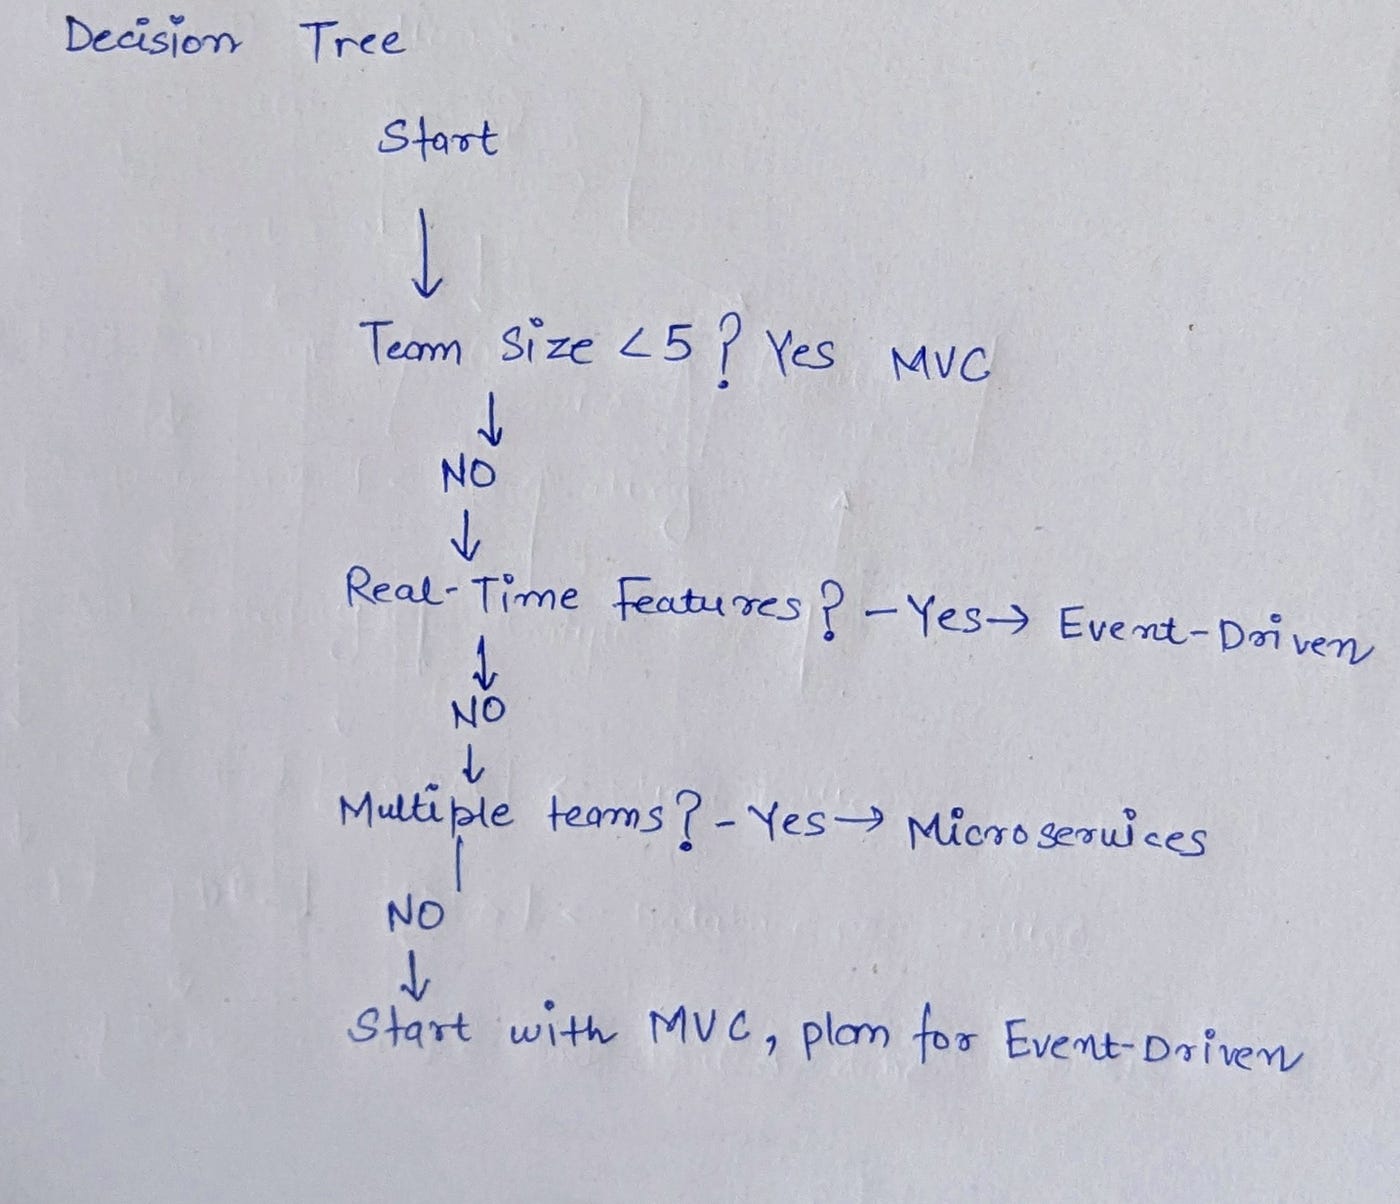 Decision Tree
Start
↓
Team Size <5? Yes MVC
↓
NO
↓
Real-Time Features? - Yes → Event-Driven
↓
NO
↓
Multiple teams? - Yes → Microservices
|
NO
↓
Start with MVC, plan for Event-Driven